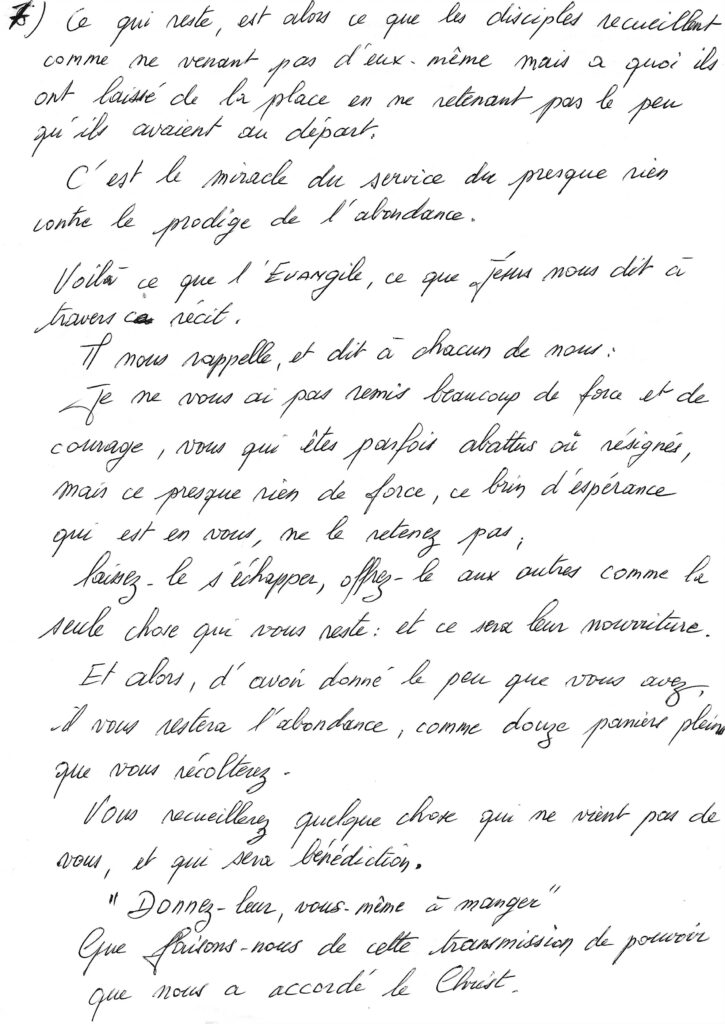 7) Ce qui reste, est alors ce que les disciples recueillent
comme ne venant pas d'eux-même mais a quoi ils
ont laissé de la place en ne retenant pas le peu
qu'ils avaient au départ.
C'est le miracle du service du presque rien
contre le prodige de l'abondance.
Voilà ce que l'EVANgile, ce que Jésus nous dit à
travers ce récit.
Il nous rappelle, et dit à chacun de nous :
Je ne vous ai pas remis beaucoup de force et de
courage, vous qui êtes parfois abattus où résignés,
mais ce presque rien de force, ce brin d'espérance
qui est en vous, ne le retenez pas,
laissez-le s'échapper, offrez-le aux autres comme la
seule chose qui vous reste : et ce sera leur nourriture.
Et alors, d'avoir donné le peu que vous avez,
il vous restera l'abondance, comme douze paniers pleins
que vous récolterez.
Vous recueillerez quelque chose qui ne vient pas de
vous, et qui sera bénédiction.
"Donnez-leur, vous-même à manger"
Que faisons-nous de cette transmission de pouvoir
que nous a accordé le Christ.